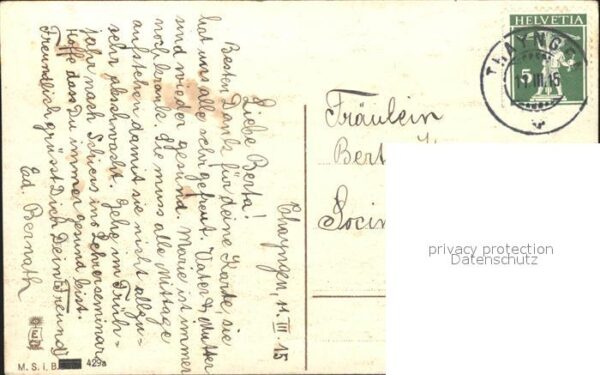 Thayngen, 11. III. 15
Liebe Berta!
Besten Dank für deine Karte, sie
hat uns alle sehr gefreut. Vater & Mutter
sind wieder gesund. Marie ist immer
noch krank. Sie muss alle Mittage
aufstehen damit sie nicht allzu-
sehr abschwächt. Gehe im Früh-
jahr nach Schiers ins Lehrerseminar.
Hoffe dass Du immer gesund bist.
Freundlich grüsst Dich Dein Freund
Ed. Bernath
Fräulein
Bert
Socin
HELVETIA
5
THAYNGEN
11.III.15
privacy protection
Datenschutz
M. S. i. B.
429a